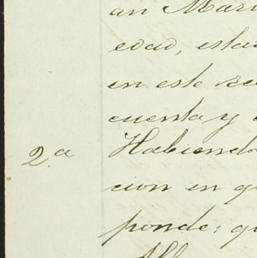 an Mari
edad, esta
en este re
cuenta y
2.a Habiendo
cion en q
ponde: q